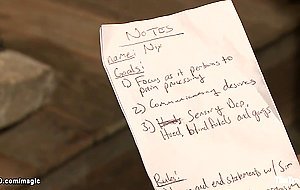 NOTES
Name: Nyx
Goals:
1) Focus as it pertains to
pain processing
2) Communicating desires
3) Sensory Dep,
Hood, blindfolds and gags
Rules:
end statements w/ Sir
.com/magic